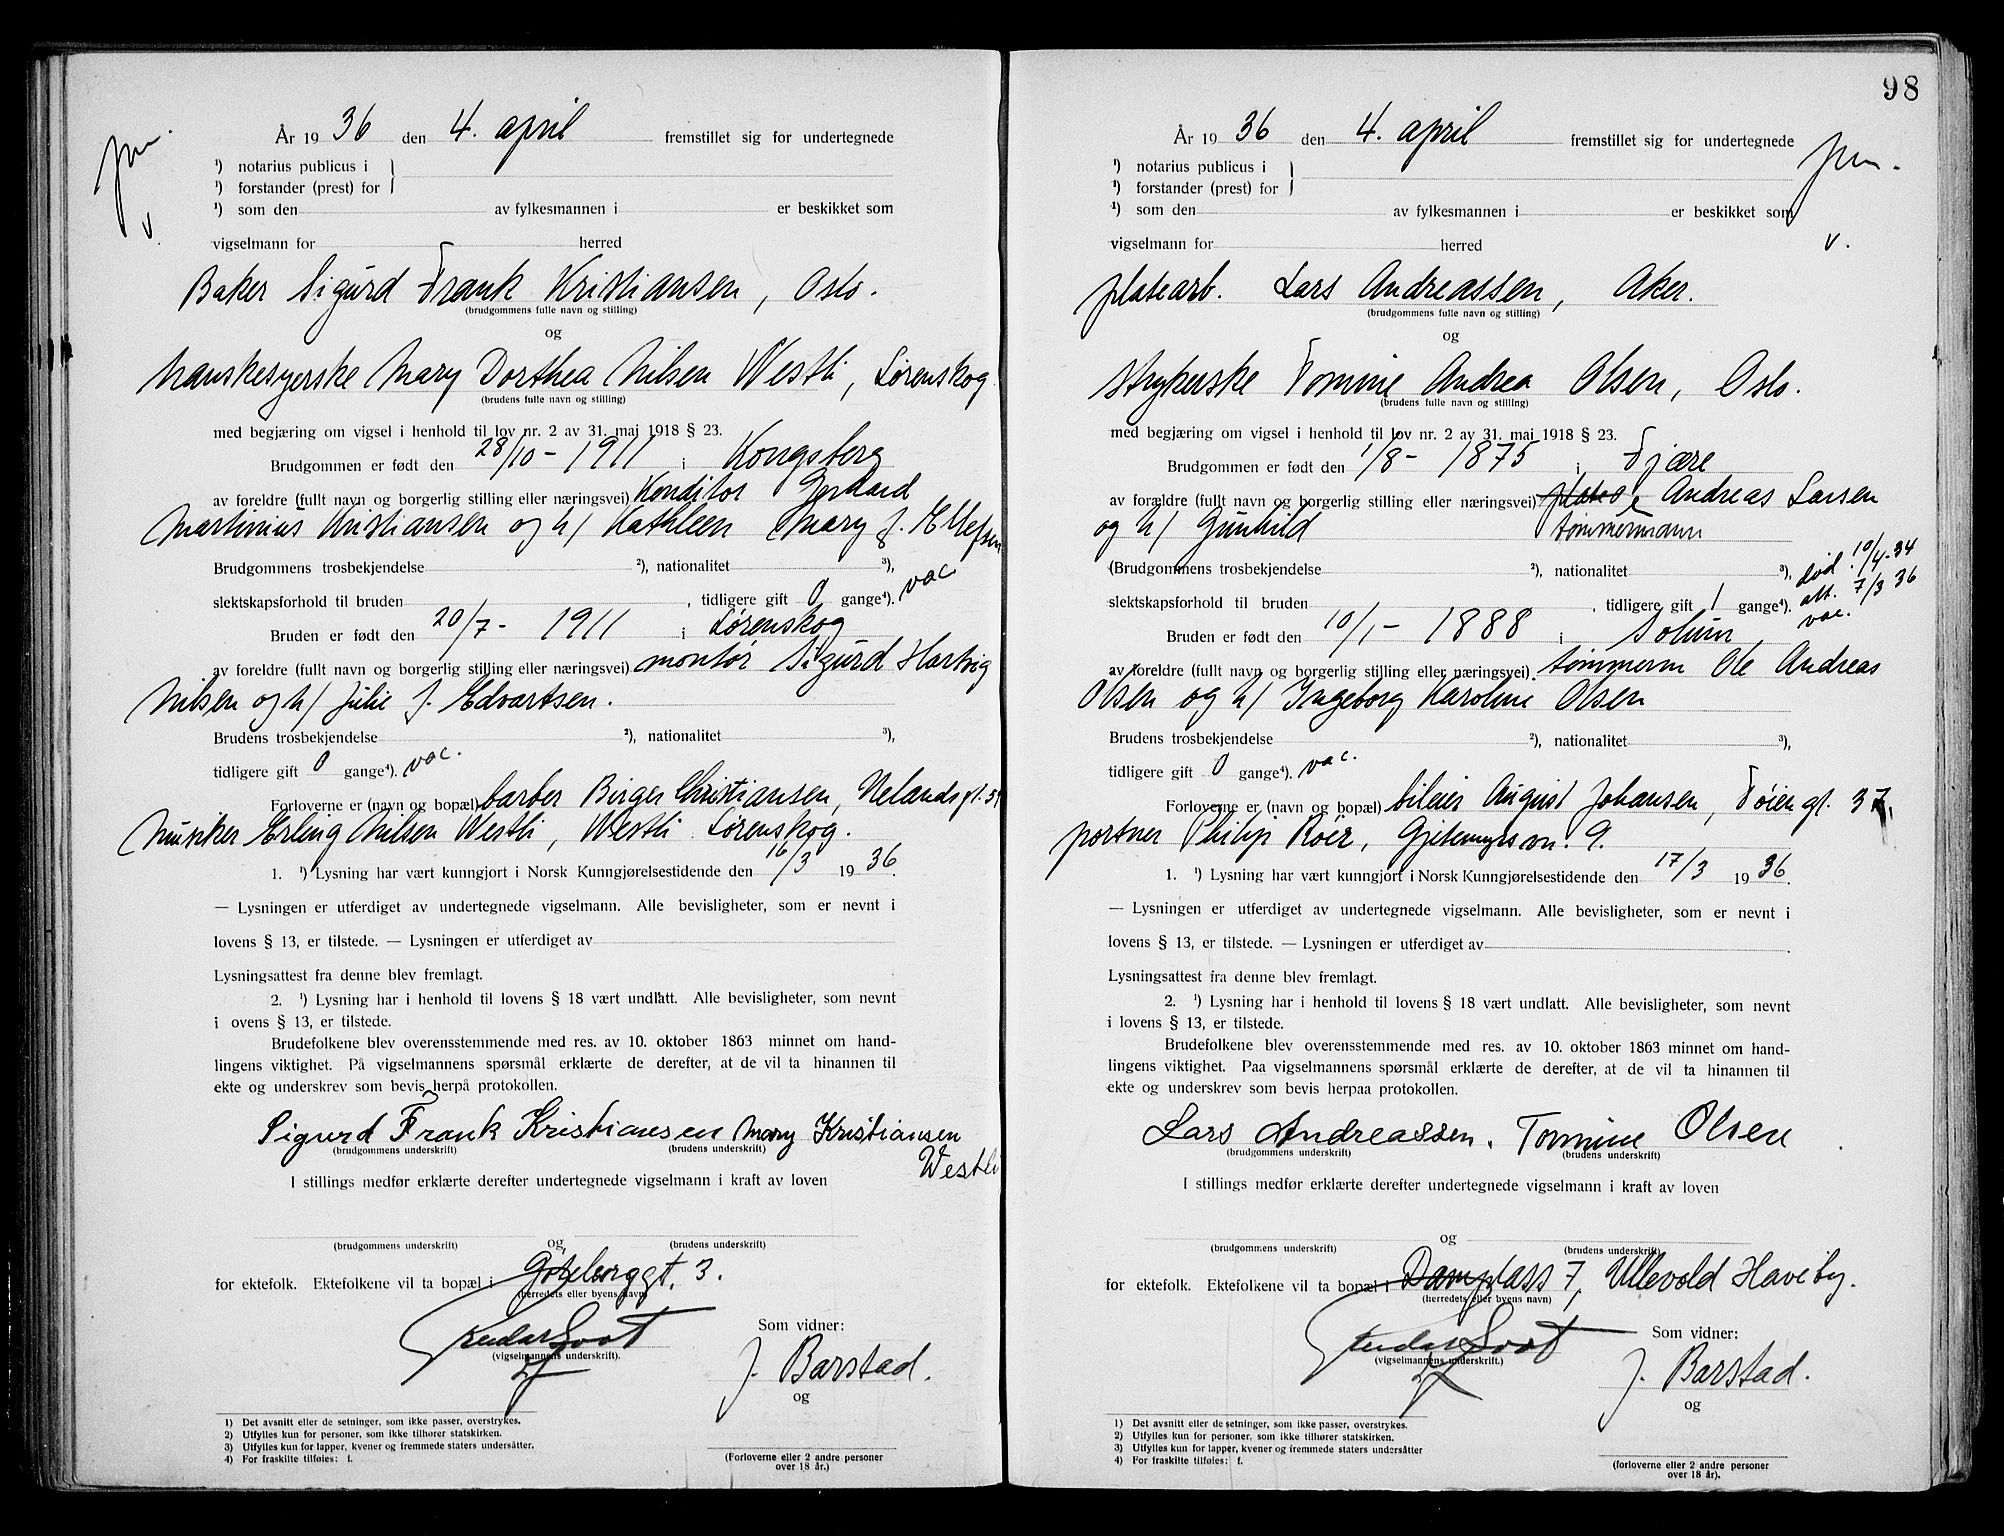 År 1936 den 4. april fremstillet sig for undertegnede
¹) notarius publicus i
¹) forstander (prest) for
¹) som den av fylkesmannen i er beskikket som
v.
vigselmann for herred
Baker Sigurd Frank Kristiansen, Oslo.
(brudgommens fulle navn og stilling)
og
Hanskesyerske Mary Dorthea Nilsen Westli, Lørenskog
(brudens fulle navn og stilling)
med begjæring om vigsel i henhold til lov nr. 2 av 31. mai 1918 § 23.
Brudgommen er født den 28/10 - 1911 i Kongsberg
av foreldre (fullt navn og borgerlig stilling eller næringsvei) Konditor Gerhard
Martinius Kristiansen og h/ Kathleen Mary f. Ellefsen
Brudgommens trosbekjendelse ²), nationalitet ³),
slektskapsforhold til bruden , tidligere gift 0 gange⁴). vac
Bruden er født den 20/7 - 1911 i Lørenskog
av foreldre (fullt navn og borgerlig stilling eller næringsvei) montør Sigurd Hartvig
Nilsen og h/ Julie f. Edvartsen.
Brudens trosbekjendelse ²), nationalitet ³),
tidligere gift 0 gange⁴). vac.
Forloverne er (navn og bopæl) barber Birger Christiansen, Nelandsgt.
Musiker Erling Nilsen Westli, Westli Lørenskog.
1. ¹) Lysning har vært kunngjort i Norsk Kunngjørelsestidende den 16/3 1936.
— Lysningen er utferdiget av undertegnede vigselmann. Alle bevisligheter, som er nevnt i
lovens § 13, er tilstede. — Lysningen er utferdiget av
Lysningsattest fra denne blev fremlagt.
2. ¹) Lysning har i henhold til lovens § 18 vært undlatt. Alle bevisligheter, som nevnt
i ovens § 13, er tilstede.
Brudefolkene blev overensstemmende med res. av 10. oktober 1863 minnet om hand-
lingens viktighet. På vigselmannens spørsmål erklærte de derefter, at de vil ta hinannen til
ekte og underskrev som bevis herpå protokollen.
Sigurd Frank Kristiansen Mary Kristiansen
(brudgommens underskrift) (brudens underskrift)
Westli
I stillings medfør erklærte derefter undertegnede vigselmann i kraft av loven
og
(brudgommens underskrift) (brudens underskrift)
for ektefolk. Ektefolkene vil ta bopæl i Gøteborggt. 3.
(herredets eller byens navn)
Som vidner:
(vigselmannens underskrift).
J. Barstad.
og
1) Det avsnitt eller de setninger, som ikke passer, overstrykes.
2) Utfylles kun for personer, som ikke tilhører statskirken.
3) Utfylles kun for lapper, kvener og fremmede staters undersåtter.
4) For fraskilte tilføies: f.
(Forloverne eller 2 andre personer
over 18 år.)
98
År 1936 den 4. april fremstillet sig for undertegnede
¹) notarius publicus i
¹) forstander (prest) for
¹) som den av fylkesmannen i er beskikket som
vigselmann for herred
v.
platearb. Lars Andreassen, Aker.
(brudgommens fulle navn og stilling)
og
strykerske Tomine Andrea Olsen, Oslo.
(brudens fulle navn og stilling)
med begjæring om vigsel i henhold til lov nr. 2 av 31. mai 1918 § 23.
Brudgommen er født den 1/8 - 1875 i Fjære
av forældre (fullt navn og borgerlig stilling eller næringsvei) Andreas Larsen
og h/ Gunhild tømmermann
(Brudgommens trosbekjendelse ²), nationalitet ³), død. 10/4-34
slektskapsforhold til bruden , tidligere gift 1 gange⁴). att. 7/3 36
vac.
Bruden er født den 10/1 - 1888 i Solum,
av foreldre (fullt navn og borgerlig stilling eller næringsvei) tømmerm Ole Andreas
Olsen og h/ Ingeborg Karoline Olsen
Brudens trosbekjendelse ²), nationalitet ³),
tidligere gift 0 gange⁴). vac.
Forloverne er (navn og bopæl) bileier August Johansen, Tøiengt. 37,
portner Philip Röer, Gjetemyrsvn. 9.
1. ¹) Lysning har vært kunngjort i Norsk Kunngjørelsestidende den 17/3 1936.
— Lysningen er utferdiget av undertegnede vigselmann. Alle bevisligheter, som er nevnt i
lovens § 13, er tilstede. — Lysningen er utferdiget av
Lysningsattest fra denne blev fremlagt.
2. ¹) Lysning har i henhold til lovens § 18 vært undlatt. Alle bevisligheter, som nevnt
i lovens § 13, er tilstede.
Brudefolkene blev overensstemmende med res. av 10. oktober 1863 minnet om hand-
lingens viktighet. Paa vigselmannens spørsmål erklærte de derefter, at de vil ta hinannen til
ekte og underskrev som bevis herpaa protokollen.
Lars Andreassen. Tomine Olsen
(brudgommens underskrift) (brudens underskrift)
I stillings medfør erklærte derefter undertegnede vigselmann i kraft av loven
og
(brudgommens underskrift) (brudens underskrift)
for ektefolk. Ektefolkene vil ta bopæl i Damplass 7, Ullevold Haveby.
(herredets eller byens navn)
Som vidner:
(vigselmannens underskrift.)
J. Barstad.
og
1) Det avsnitt eller de setninger, som ikke passer, overstrykes.
2) Utfylles kun for personer, som ikke tilhører statskirken.
3) Utfylles kun for lapper, kvener og fremmede staters undersåtter
4) For fraskilte tilføies: f.
(forloverne eller 2 andre personer
over 18 år).